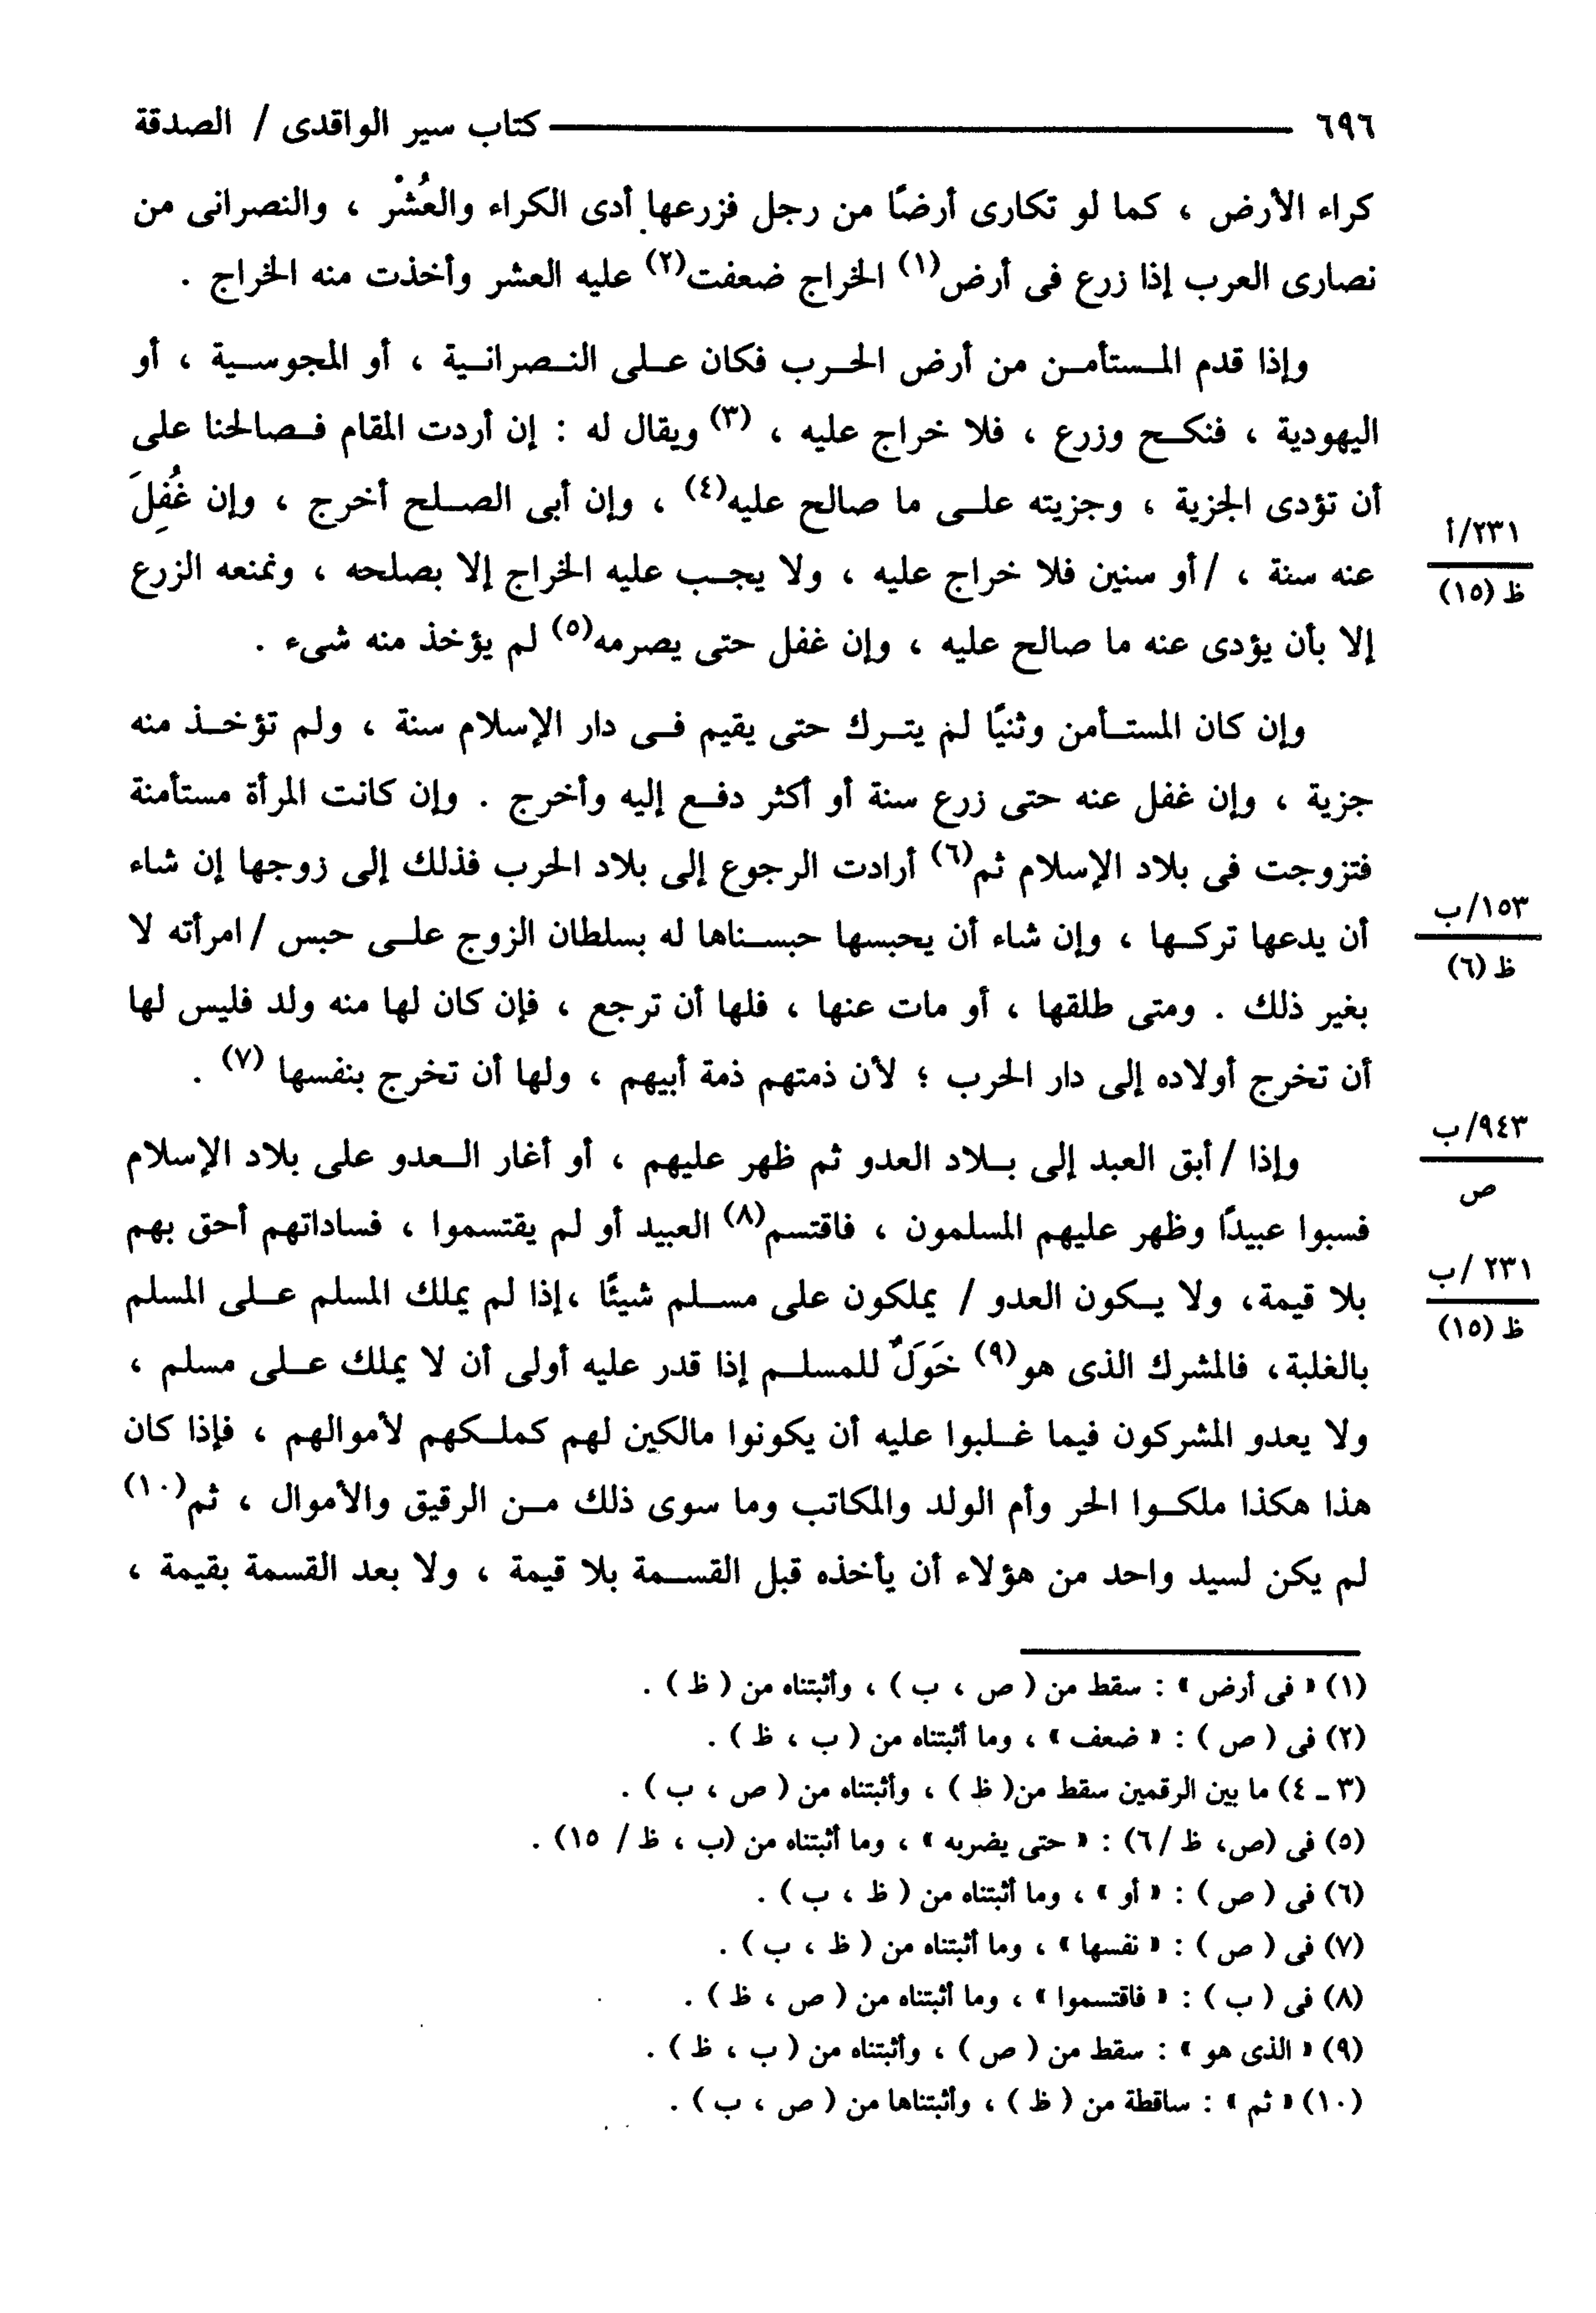 ٦٩٦ ــــــ كتاب سير الواقدى / الصدقة
كراء الأرض ، كما لو تكارى أرضًا من رجل فزرعها أدى الكراء والعُشْر ، والنصرانى من
نصارى العرب إذا زرع فى أرض(١) الخراج ضعفت(٢) عليه العشر وأخذت منه الخراج .
وإذا قدم المستأمن من أرض الحرب فكان على النصرانية ، أو المجوسية ، أو
اليهودية ، فنكح وزرع ، فلا خراج عليه ، (٣) ويقال له : إن أردت المقام فصالحنا على
أن تؤدى الجزية ، وجزيته على ما صالح عليه(٤) ، وإن أبى الصلح أخرج ، وإن غُفِلَ
٢٣١/أ
عنه سنة ، /أو سنين فلا خراج عليه ، ولا يجب عليه الخراج إلا بصلحه ، ونمنعه الزرع
ظ (١٥)
إلا بأن يؤدى عنه ما صالح عليه ، وإن غفل حتى يصرمه(٥) لم يؤخذ منه شىء .
وإن كان المستأمن وثنيًا لم يترك حتى يقيم فى دار الإسلام سنة ، ولم تؤخذ منه
جزية ، وإن غفل عنه حتى زرع سنة أو أكثر دفع إليه وأخرج . وإن كانت المرأة مستأمنة
فتزوجت فى بلاد الإسلام ثم(٦) أرادت الرجوع إلى بلاد الحرب فذلك إلى زوجها إن شاء
١٥٣/ب
أن يدعها تركها ، وإن شاء أن يحبسها حبسناها له بسلطان الزوج على حبس /امرأته لا
ظ (٦)
بغير ذلك . ومتى طلقها ، أو مات عنها ، فلها أن ترجع ، فإن كان لها منه ولد فليس لها
أن تخرج أولاده إلى دار الحرب ؛ لأن ذمتهم ذمة أبيهم ، ولها أن تخرج بنفسها (٧) .
٩٤٣/ب
وإذا /أبق العبد إلى بلاد العدو ثم ظهر عليهم ، أو أغار العدو على بلاد الإسلام
ص
فسبوا عبيدًا وظهر عليهم المسلمون ، فاقتسم(٨) العبيد أو لم يقتسموا ، فساداتهم أحق بهم
٢٣١ /ب
بلا قيمة، ولا يكون العدو / يملكون على مسلم شيئًا ،إذا لم يملك المسلم على المسلم
ظ (١٥)
بالغلبة، فالمشرك الذى هو(٩) خَوَلٌ للمسلم إذا قدر عليه أولى أن لا يملك على مسلم ،
ولا يعدو المشركون فيما غلبوا عليه أن يكونوا مالكين لهم كملكهم لأموالهم ، فإذا كان
هذا هكذا ملكوا الحر وأم الولد والمكاتب وما سوى ذلك من الرقيق والأموال ، ثم(١٠)
لم يكن لسيد واحد من هؤلاء أن يأخذه قبل القسمة بلا قيمة ، ولا بعد القسمة بقيمة ،
(١) « فى أرض » : سقط من ( ص ، ب ) ، وأثبتناه من ( ظ ) .
(٢) فى ( ص ) : « ضعف » ، وما أثبتناه من ( ب ، ظ ) .
(٣ - ٤) ما بين الرقمين سقط من( ظ ) ، وأثبتناه من ( ص ، ب ) .
(٥) فى (ص، ظ /٦) : « حتى يضربه » ، وما أثبتناه من (ب ، ظ / ١٥) .
(٦) فى ( ص ) : « أو » ، وما أثبتناه من ( ظ ، ب ) .
(٧) فى ( ص ) : « نفسها » ، وما أثبتناه من ( ظ ، ب ) .
(٨) فى ( ب ) : « فاقتسموا » ، وما أثبتناه من ( ص ، ظ ) .
(٩) « الذى هو » : سقط من ( ص ) ، وأثبتناه من ( ب ، ظ ) .
(١٠) « ثم » : ساقطة من ( ظ ) ، وأثبتناها من ( ص ، ب ) .